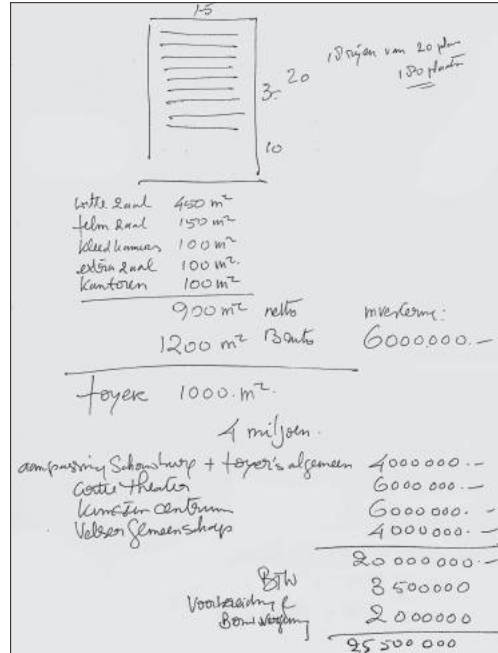 15
18 rijen van 20 plaa
180 plaatsen
3- 20
10
witte zaal 450 m²
film zaal 150 m²
kleedkamers 100 m²
extra zaal 100 m²
kantoren 100 m²
900 m² netto investering:
1200 m² Bruto 6000.000.-
foyer 1000. m².
4 miljoen.
aanpassing Schouwburg + foyer's algemeen 4000000.-
theater 6000000.-
kunsten centrum 6000000.-
Velser Gemeenschap 4000000.-
20 000 000.-
BTW 3 500000
Voorbereiding &
2 000000
25 500 000